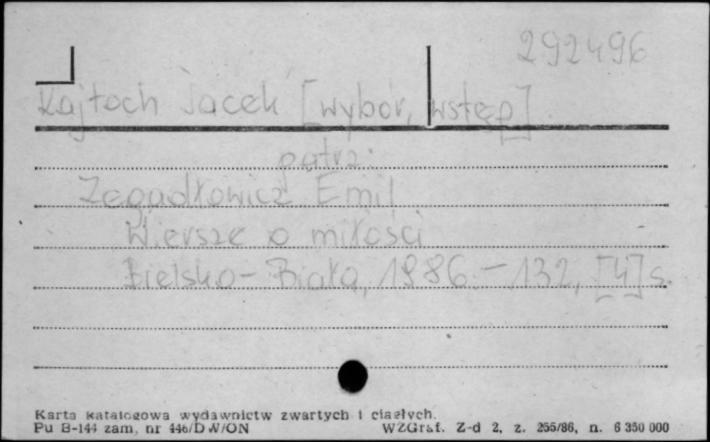 292496
Kajtoch Jacek [wybór, wstęp]
patrz:
Zegadłowicz Emil
Wiersze o miłości
Bielsko-Biała, 1986. – 132, [4] s.
Karta katalogowa wydawnictw zwartych i ciągłych.
Pu B-144 zam. nr 446/DW/ON WZGraf. Z-d 2, z. 255/86, n. 6 350 000